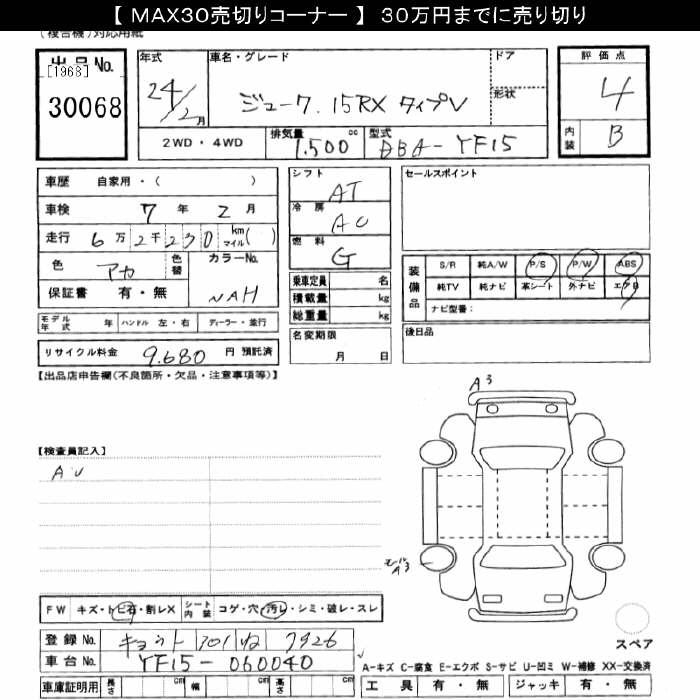 【 MAX30売切りコーナー 】 30万円までに売り切り
(複合機)対応用紙
出品No.
[1968]
30068
年式
24/2月
車名・グレード
ジューク. 15RX タイプV
ドア
形状
2WD・4WD
排気量
1.500 cc
型式
DBA-YF15
評価点
4
内装
B
車歴 自家用・( )
車検 7年 2月
走行 6万2千230 km マイル( )
色 アカ 色替 カラーNo.
保証書 有・無 NAH
モデル年式 年 ハンドル 左・右 ディーラー・並行
リサイクル料金 9.680 円 預託済
シフト AT
冷房 AC
燃料 G
乗車定員 名
積載量 kg
総重量 kg
名変期限
月 日
セールスポイント
装備品
S/R 純A/W P/S P/W ABS
純TV 純ナビ 革シート 外ナビ エアB
ナビ型番:
後日品
【出品店申告欄(不良箇所・欠品・注意事項等)】
【検査員記入】
AU
A3
モール
A3
FW キズ・トビ石・割レX シート内装 コゲ・穴・汚レ・シミ・破レ・スレ
登録No. キョウト 301 ね 7926
車台No. YF15-060040
車庫証明用 長さ cm 幅 cm 高さ cm
スペア
A-キズ C-腐食 E-エクボ S-サビ U-凹ミ W-補修 XX-交換済
工具 有・無 ジャッキ 有・無